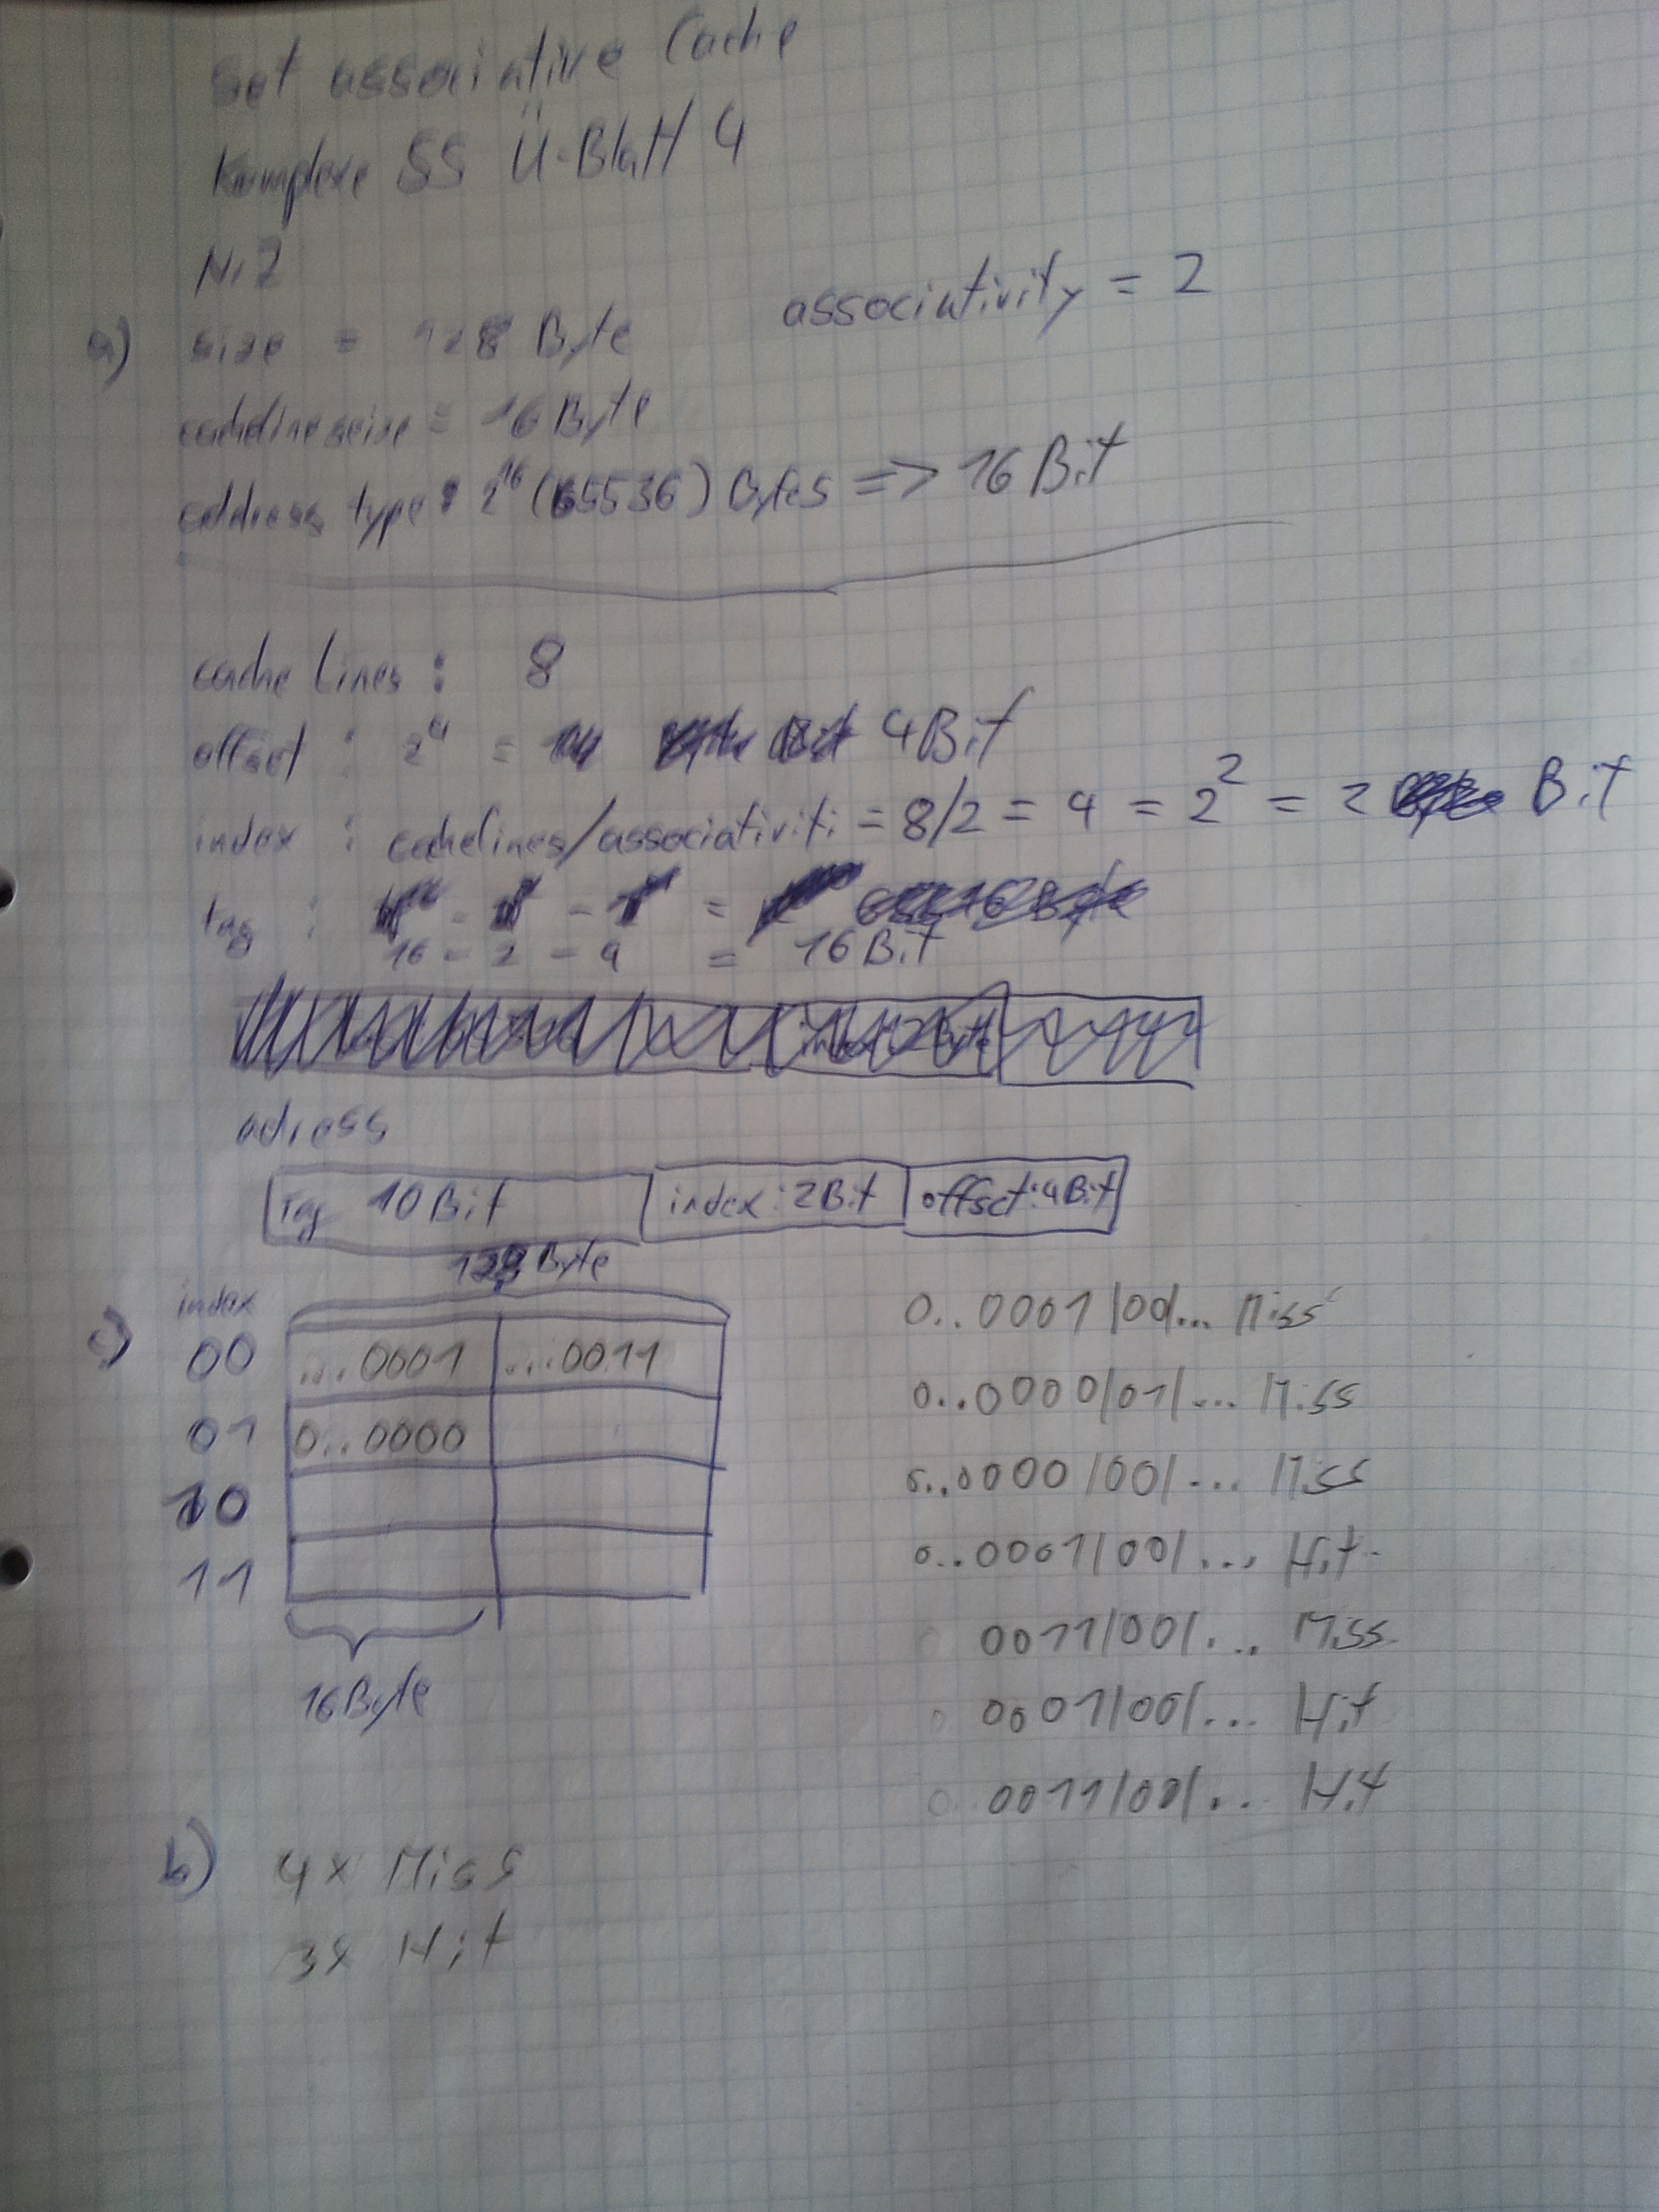 Set associative Cache
Komplexe SS Ü-Blatt 4
Nr 2
a) size = 128 Byte associativity = 2
cachelineseize = 16 Byte
address type : 2^16 (65536) Bytes => 16 Bit
cache lines : 8
offset : 2^4 = 4 Bit
index : cachelines/associativiti = 8/2 = 4 = 2^2 = 2 Bit
tag :
16 - 2 - 4 = 16 Bit
adress
Tag 10 Bit index: 2 Bit offset: 4 Bit
128 Byte
c) index
00 ...0001 ...0011
01 0..0000
10
11
16 Byte
0..0001|00|... Miss
0..0000|01|... Miss
0..0000|00|... Miss
0..0001|00|... Hit
0011|00|... Miss
0001|00|... Hit
0011|00|... Hit
b) 4x Miss
3x Hit